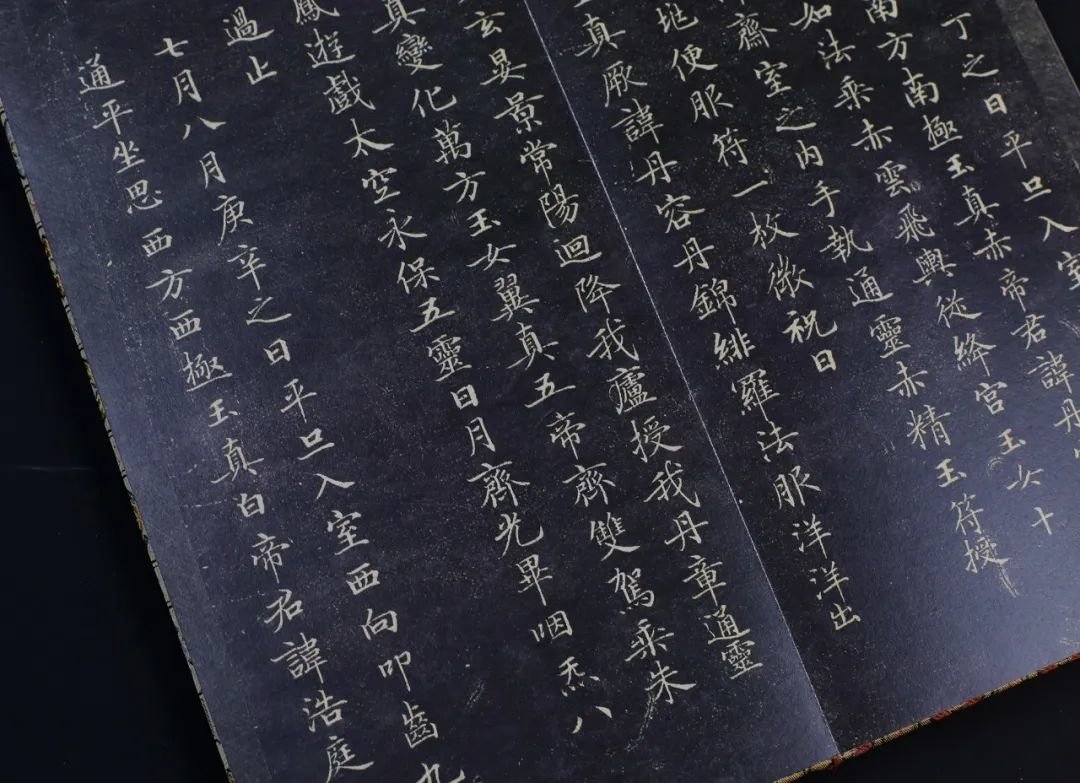 丁之日平旦入室
南方南極玉真赤帝君諱丹
如法乘赤雲飛輿從絳宮玉女十
齋室之内手執通靈赤精玉符授
地便服符一枚微祝曰
真厥諱丹容丹錦緋羅法服洋洋出
玄晏景常陽迴降我廬授我丹章通靈
真變化萬方玉女翼真五帝齊雙駕乘朱
鳳遊戲太空永保五靈日月齊光畢咽炁八
過止
七月八月庚辛之日平旦入室西向叩齒九
通平坐思西方西極玉真白帝君諱浩庭